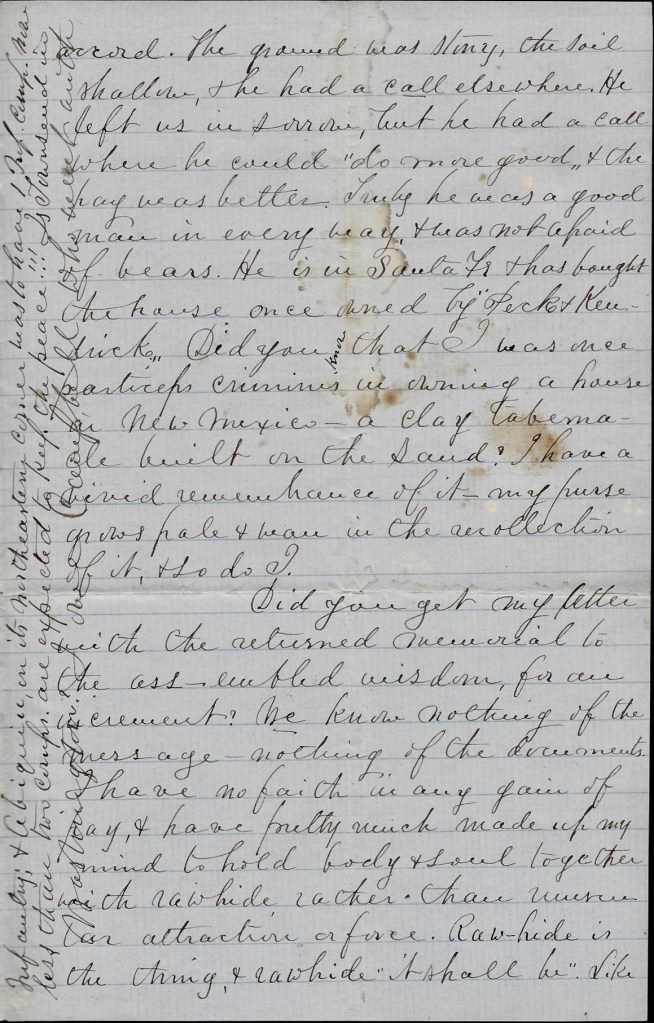 accord. The ground was stony, the soil
shallow, & he had a call elsewhere. He
left us in sorrow, but he had a call
where he could "do more good„ & the
pay was better. Truly he was a good
man in every way, & was not afraid
of bears. He is in Santa Fe & has bought
the house once owned by "Peck & Ken-
drick„ Did you know that I was once
particeps criminis in owning a house
in New Mexico - a clay taberna-
cle built on the sand? I have a
vivid remembrance of it - my purse
grows pale & wan in the recollection
of it, & so do I.
Did you get my letter
with the returned memorial to
the ass-embled wisdom, for an
increment? We know nothing of the
message - nothing of the documents.
I have no faith in any gain of
pay, & have pretty much made up my
mind to hold body & soul together
with rawhide rather than muscu
lar attraction or force. Raw-hide is
the thing, & rawhide "it shall be". Like
Infantry; & Abiquiu, in its northeastern corner was to have 1 Inf. Comp. No
less than two comps. are expected to keep the peace!!! Is Townsend in
Washington?